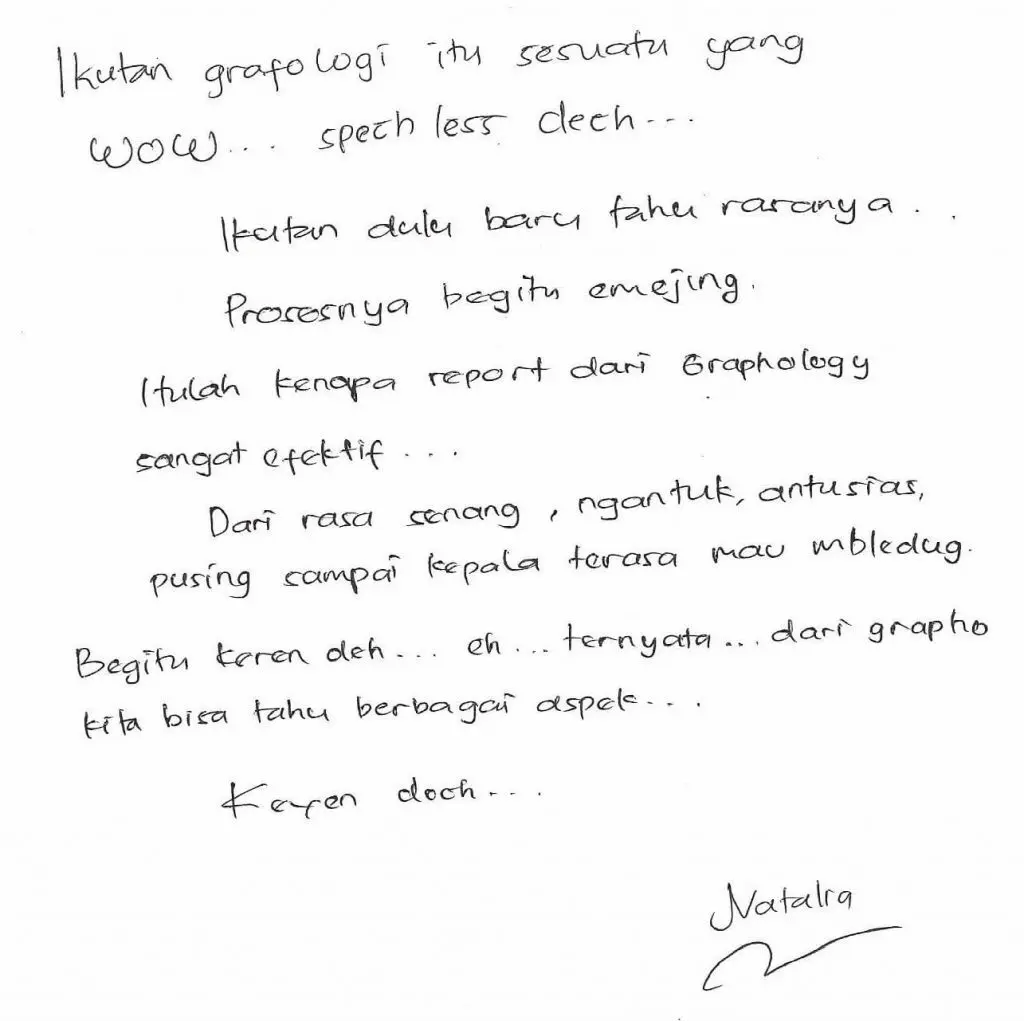 Ikutan grafologi itu sesuatu yang
WOW... spechless dech...
Ikutan dulu baru tahu rasanya..
Prosesnya begitu emejing.
Itulah kenapa report dari Graphology
sangat efektif...
Dari rasa senang, ngantuk, antusias,
pusing sampai kepala terasa mau mbledug.
Begitu keren deh... eh... ternyata... dari grapho
kita bisa tahu berbagai aspek...
Keyen doch...
Natalia